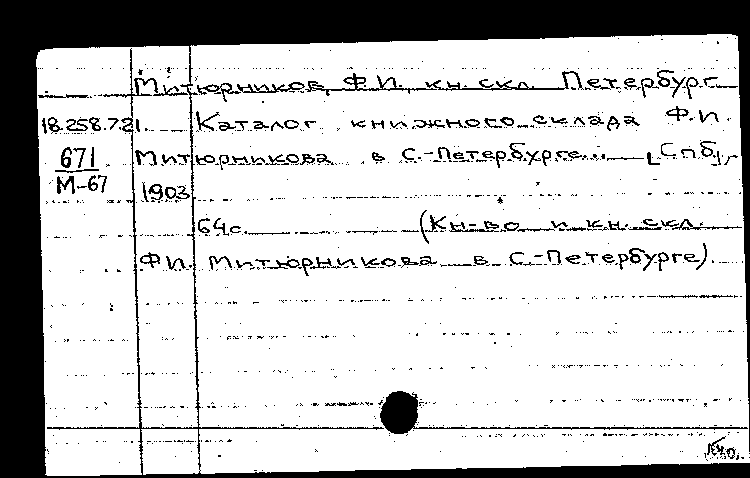 Митюрников, Ф.И., кн. скл. Петербург
18.258.7.21. Каталог книжного склада Ф.И.
671 Митюрникова в С.-Петербурге... [Спб],
М-67 1903
64с. (Кн-во и кн. скл.
Ф.И. Митюрникова в С.-Петербурге).